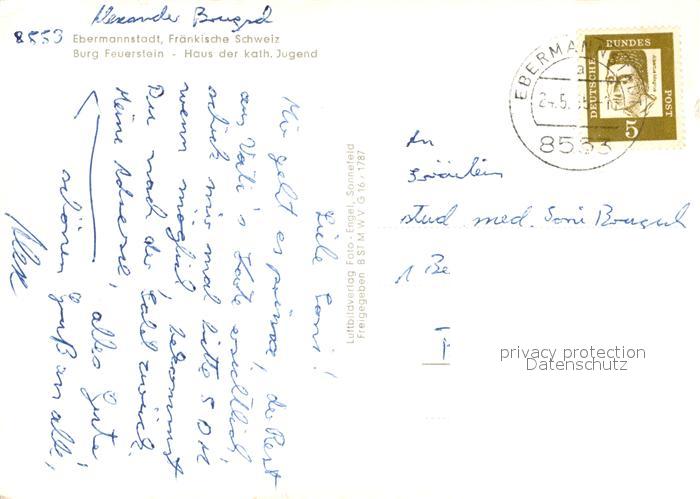 Alexander Bougsch
8553 Ebermannstadt, Fränkische Schweiz
Burg Feuerstein - Haus der kath. Jugend
Liebe Soni!
Mir geht es prima, der Rest
aus Vati's Karte ersichtlich,
schick mir mal bitte 5 DM
wenn möglich, bekommst
Du nach der zurück.
Meine Adresse, alles Gute
schönen Gruß an alle,
Alex
Luftbildverlag Foto-Engel, Sonnefeld
Freigegeben B ST M W V G 16 / 1787
EBERMANN
a
24.5.
8553
DEUTSCHE BUNDESPOST
5
An
Fräulein
stud. med. Soni Bougsch
1 Be
privacy protection
Datenschutz